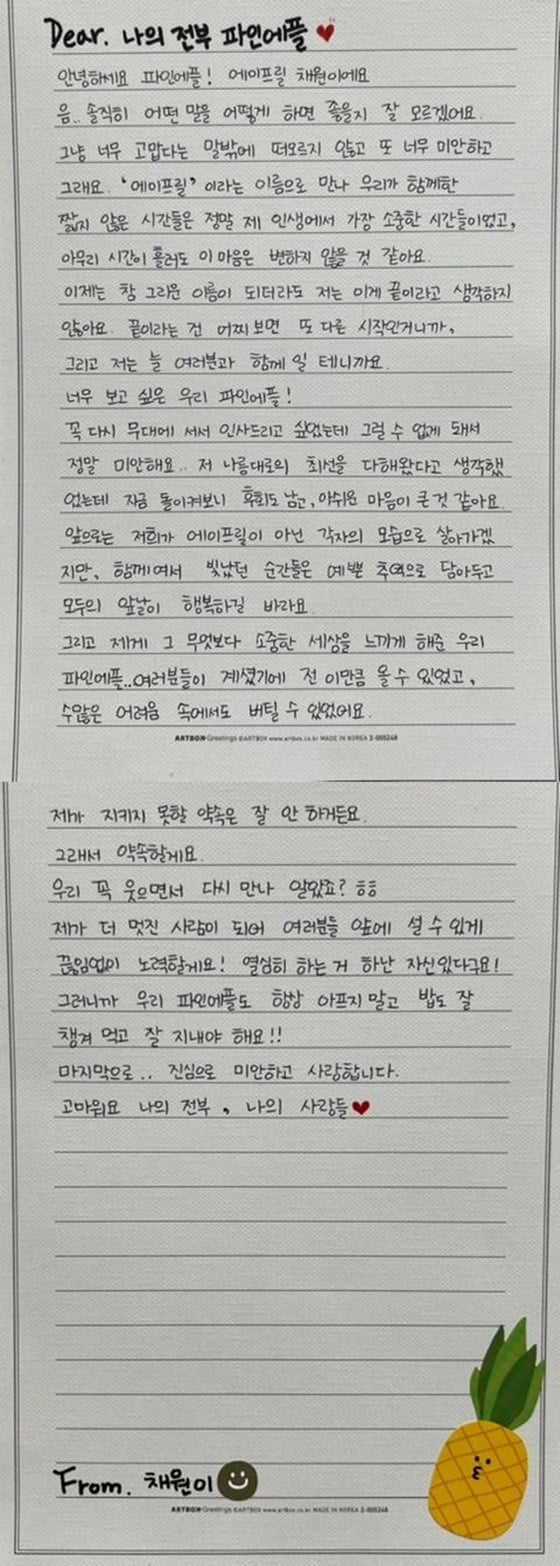 Dear. 나의 전부 파인에플
안녕하세요 파인에플! 에이프릴 채원이에요
음.. 솔직히 어떤 말을 어떻게 하면 좋을지 잘 모르겠어요.
그냥 너무 고맙다는 말밖에 떠오르지 않고 또 너무 미안하고
그래요. '에이프릴' 이라는 이름으로 만나 우리가 함께한
짧지 않은 시간들은 정말 제 인생에서 가장 소중한 시간들이었고,
아무리 시간이 흘러도 이 마음은 변하지 않을 것 같아요.
이제는 참 그리운 이름이 되더라도 저는 이게 끝이라고 생각하지
않아요. 끝이라는 건 어찌 보면 또 다른 시작인거니까,
그리고 저는 늘 여러분과 함께 일 테니까요.
너무 보고 싶은 우리 파인에플!
꼭 다시 무대에 서서 인사드리고 싶었는데 그럴 수 없게 돼서
정말 미안해요.. 저 나름대로의 최선을 다해왔다고 생각했
었는데 지금 돌이켜보니 후회도 남고, 아쉬운 마음이 큰 것 같아요.
앞으로는 저희가 에이프릴이 아닌 각자의 모습으로 살아가겠
지만, 함께여서 빛났던 순간들은 예쁜 추억으로 담아두고
모두의 앞날이 행복하길 바라요.
그리고 제게 그 무엇보다 소중한 세상을 느끼게 해준 우리
파인에플..여러분들이 계셨기에 전 이만큼 올 수 있었고,
수많은 어려움 속에서도 버틸 수 있었어요.
ARTBOX Greetings ©ARTBOX www.artbox.co.kr MADE IN KOREA 2-005248
제가 지키지 못할 약속은 잘 안 하거든요.
그래서 약속할게요.
우리 꼭 웃으면서 다시 만나 알았죠? ㅎㅎ
제가 더 멋진 사람이 되어 여러분들 앞에 설 수 있게
끊임없이 노력할게요! 열심히 하는 거 하난 자신있다구요!
그러니까 우리 파인에플도 항상 아프지 말고 밥도 잘
챙겨 먹고 잘 지내야 해요!!
마지막으로.. 진심으로 미안하고 사랑합니다.
고마워요 나의 전부, 나의 사랑들
From. 채원이
ARTBOX Greetings ©ARTBOX www.artbox.co.kr MADE IN KOREA 2-005248